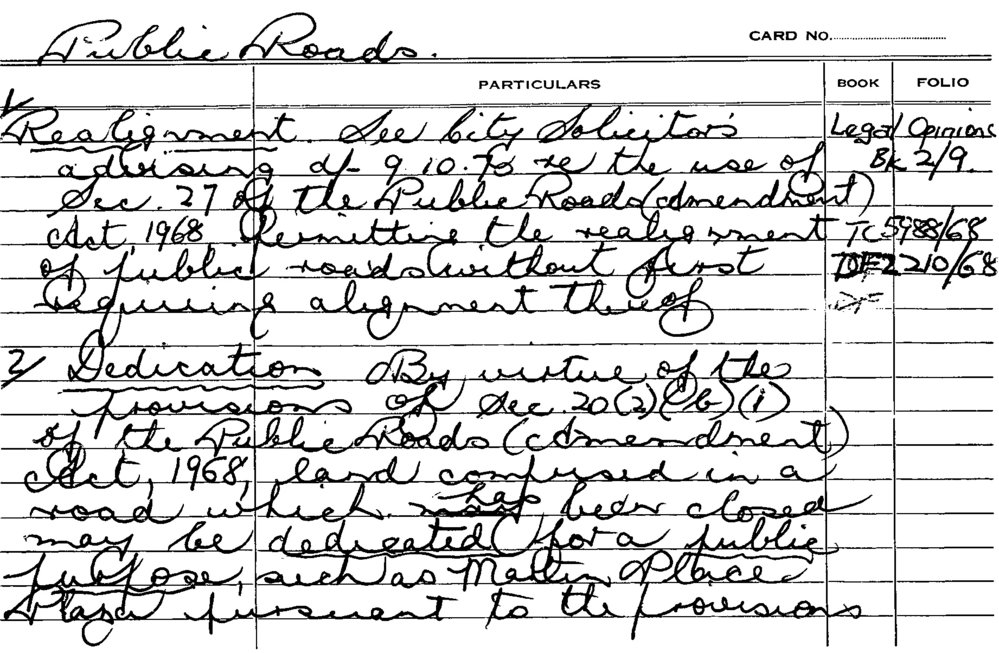 Public Roads.
CARD No.
PARTICULARS BOOK FOLIO
1/
Realignment. See City Solicitor's Legal Opinions
advising df 9.10.73 re the use of Bk 2/9.
Sec. 27 of the Public Roads (Amendment)
Act, 1968, Permitting the realignment TC 5988/68
of public roads without first 2210/68
requiring alignment thereof
2/ Dedication By virtue of the
provisions of Sec. 20(2)(b)(i)
of the Public Roads (Amendment)
Act, 1968, land comprised in a
road which has been closed
may be dedicated for a public
purpose, such as Martin Place
Plaza pursuant to the provisions